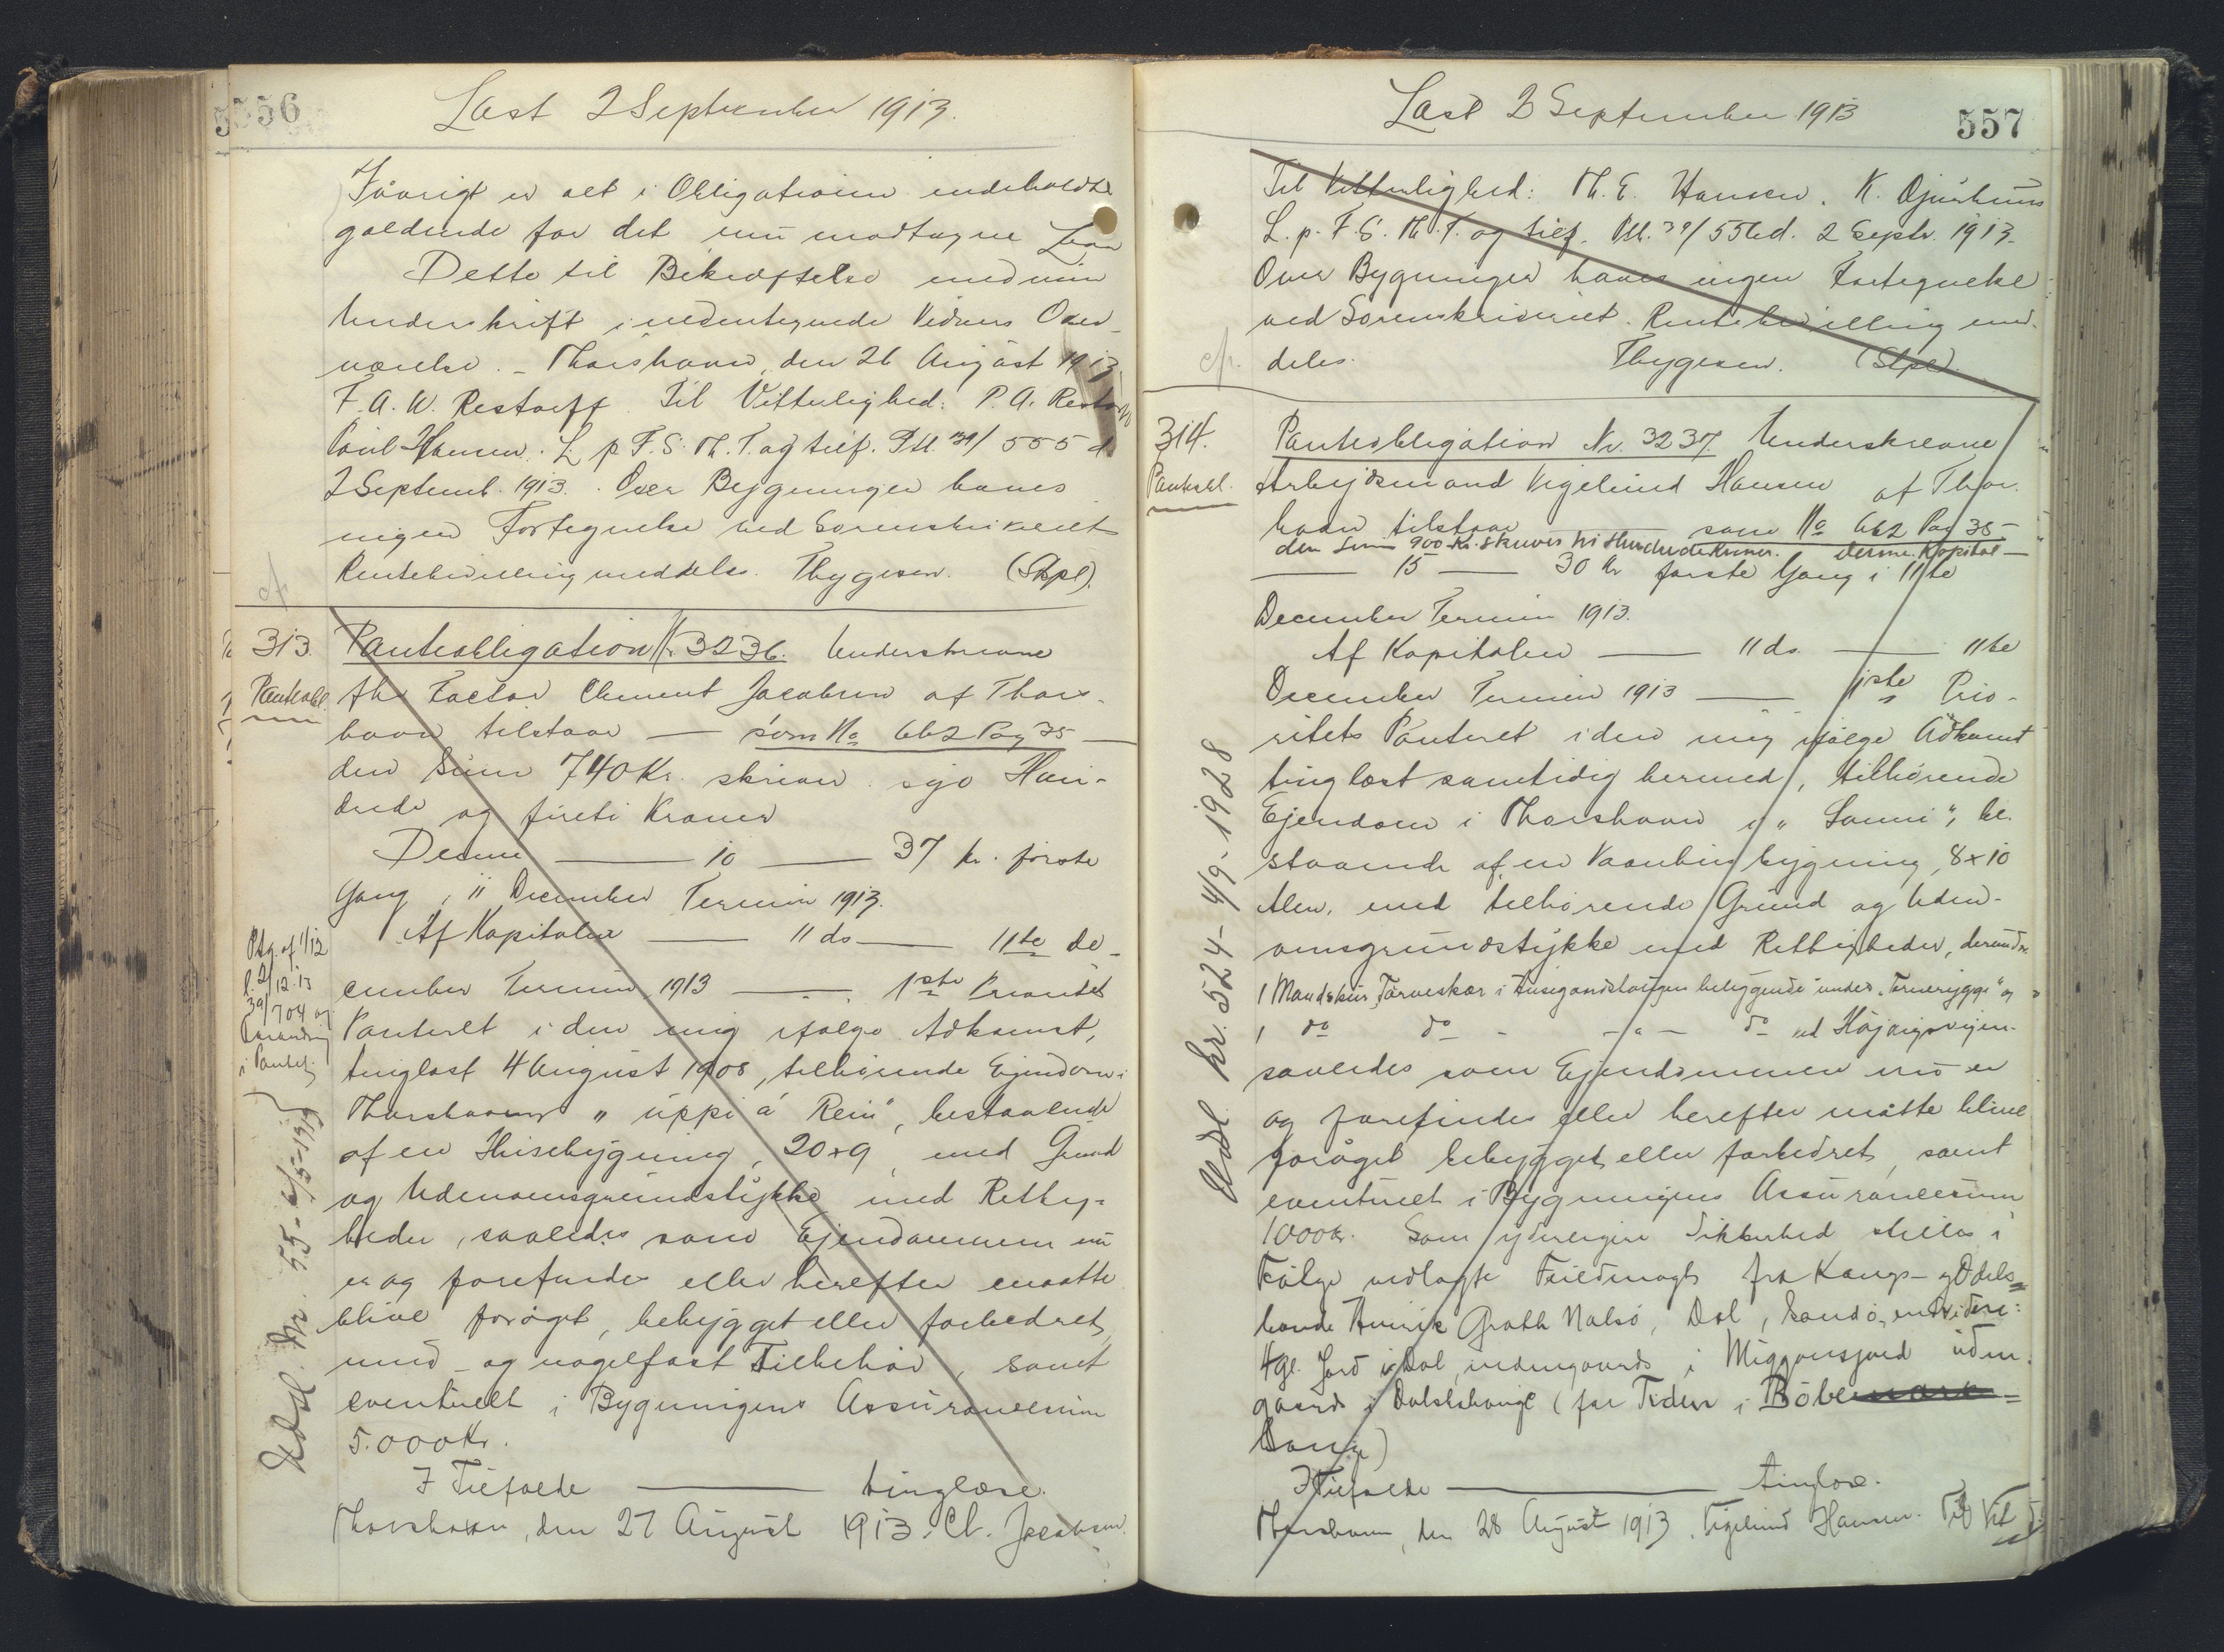 556
Læst 2 September 1913.
Iøvrigt er alt i Obligationen indeholdte
gældende for det nu modtagne Laan
Dette til Bekræftelse med min
Underskrift i nedentegnede Vidners Over-
værelse. - Thorshavn, den 26 August 1913
F. A. W. Restorff. Til Vitterlighed: P. A. Restorff
Poul Hansen. L. p. F. S. Th. T. og tilf. P.M. 39/555 d
2 Septemb. 1913. Over Bygningen haves
ingen Fortegnelse ved Sorenskriveriet
Rentebevilling meddeles. Thygesen. (Stpl).
cf
313.
Panteobl.
Panteobligation Nr. 3236. Underskrevne
fhv Factor Clement Jacobsen af Thors-
havn tilstaar — som No 662 Pag 35 —
den Sum 740 Kr. skriver syv Hun-
drede og fireti Kroner
Denne — 10 — 37 kr. første
Gang i 11 December Termin 1913.
Af Kapitalen — 11 do — 11te De-
cember Termin 1913 — 1ste Prioritet
Panteret i den mig ifølge Adkomst,
tinglæst 4 August 1908, tilhørende Ejendom i
Thorshavn „uppi á Reiñ", bestaaende
af en Husebygning, 20x9, med Grund
og Udenomsgrundstykke med Rettig-
heder, saaledes som Ejendommen nu
er og forefindes eller herefter maatte
blive forøget, bebygget eller forbedret,
mur- og nagelfast Tilbehør, samt
eventuelt i Bygningens Assurancesum
5.000 Kr.
I Tilfælde — tinglæse.
Thorshavn, den 27 August 1913. Cl. Jacobsen.
Ptg. af 1/12
l. 2/12-13
39/704 og
i Pantet.
Udsl. Nr. 55-
557
Læst 2 September 1913
Til Vitterlighed: M. E. Hansen. K. Djurhuus
L. p. F. S. Th. T. og tilf. P.M. 39/556d. 2 Septr. 1913.
Over Bygningen haves ingen Fortegnelse
ved Sorenskriveriet. Rentebevilling med-
deles. Thygesen. (Stpl).
cfr.
314.
Panteobl.
Panteobligation Nr. 3237. Underskrevne
Arbejdsmand Vigelund Hansen af Thors-
havn tilstaar — som No 662 Pag 35 -
den Sum 900 Kr. skriver ni Hundrede Kroner. Denne Kapital —
— 15 — 30 Kr første Gang i 11te
December Termin 1913.
Af Kapitalen — 11 do — 11te
December Termin 1913 — 1ste Prio-
ritets Panteret i den mig ifølge Adkomst
tinglæst samtidig hermed, tilhørende
Ejendom i Thorshavn i „ Sanni", be-
staaende af en Vaaningsbygning, 8x10
Alen, med tilhørende Grund og Uden-
omsgrundstykke med Rettigheder, derunder
1 Mandskur, Tørveskær i Husegaardslaugen beliggende under „ " og
1 do do - - „ - do ved
saaledes som Ejendommen nu er
og forefindes eller herefter måtte blive
forøget bebygget eller forbedret, samt
eventuelt i Bygningens Assurancesum
1000 Kr. Som yderligere Sikkerhed stilles i
Følge vedlagte Fuldmagt fra Kongs- og Odels-
bonde Henrik Groth Nalsø, Dal, Sandø, endvidere:
4 gl. Jord i Dal, indengaards i uden-
gaards i Dalshauge (før Tiden i Böle
Hauge)
I Tilfælde — tinglæse.
Thorshavn, den 28 August 1913. Vigelund Hansen. Til Vit
Udsl. Nr. 524 - 4/9-1928